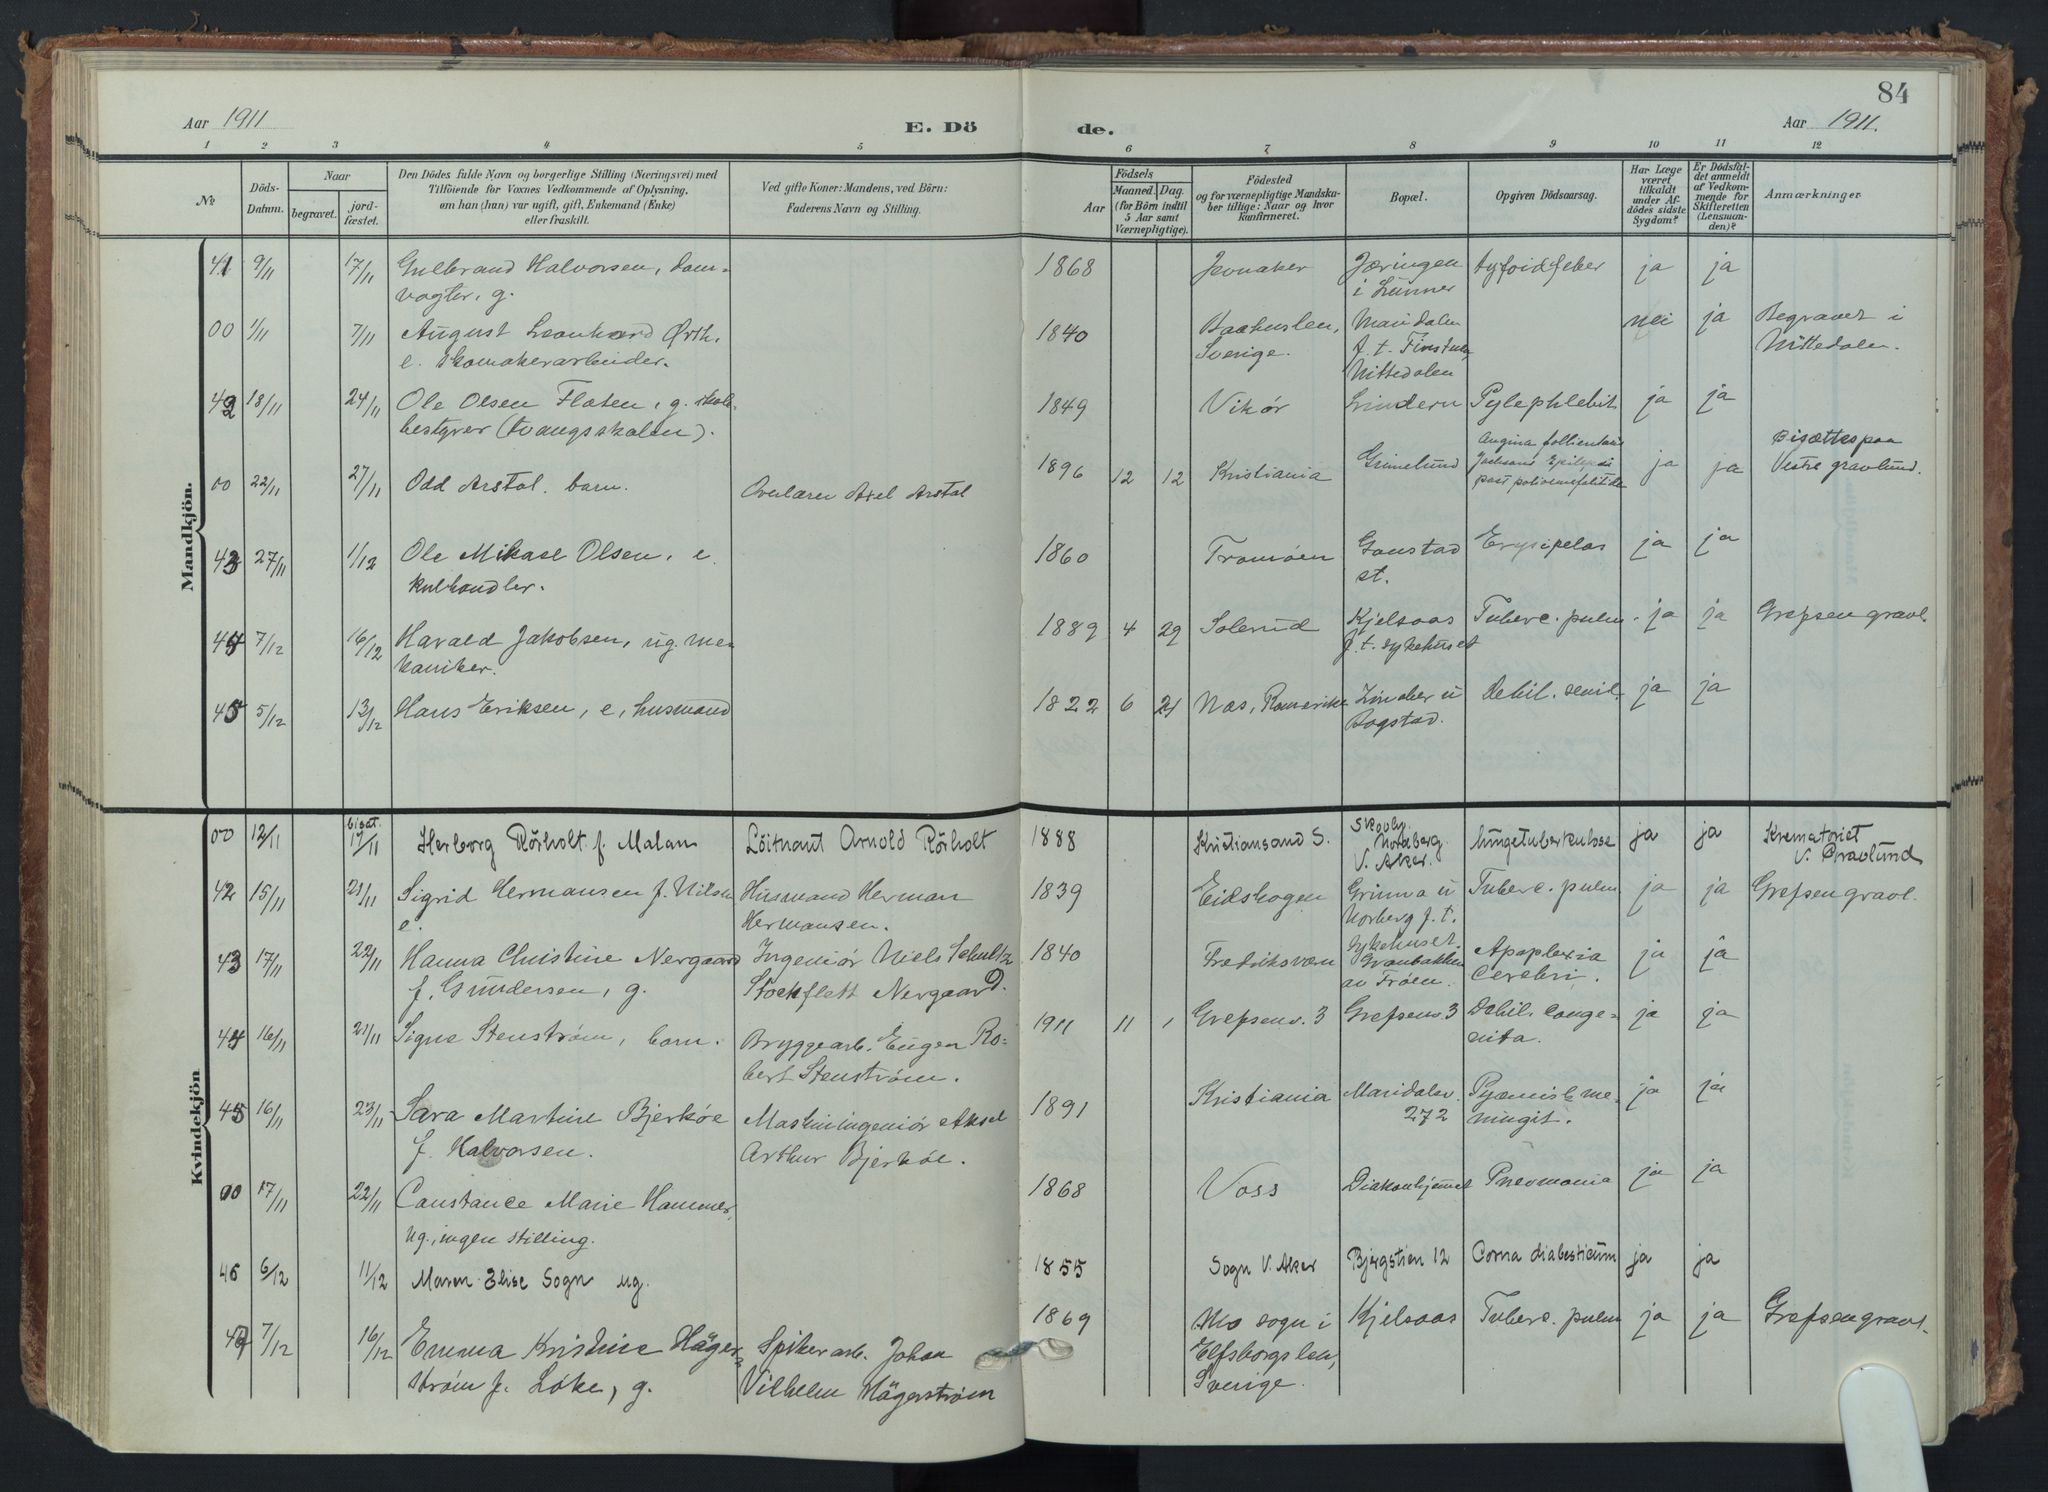 84
Aar 1911
E. Dö
de.
Aar 1911.
1 2 3 4 5 6 7 8 9 10 11 12
№
Döds-Datum.
Naar
begravet.
jord-fæstet.
Den Dödes fulde Navn og borgerlige Stilling (Næringsvei) med
Tilföiende for Voxnes Vedkommende af Oplysning,
om han (hun) var ugift, gift, Enkemand (Enke)
eller fraskilt.
Ved gifte Koner: Mandens, ved Börn:
Faderens Navn og Stilling.
Födsels
Aar
Maaned. Dag.
(for Börn indtil
5 Aar samt
Værnepligtige).
Födested
og for værnepligtige Mandska-
ber tillige: Naar og hvor
konfirmeret.
Bopæl.
Opgiven Dödsaarsag.
Har Læge
været
tilkaldt
under Af-
dödes sidste
Sygdom?
Er Dödsfal-
det anmeldt
af Vedkom-
mende for
Skifteretten
(Lensman-
den)?
Anmærkninger
Mandkjön.
41 9/11 17/11 Gulbrand Halvorsen, dam- 1868 Jevnaker Jæringen tyfoidfeber ja ja
vogter, g. i Lunner
00 1/11 7/11 August Leonhard Ørth, 1840 Baahuslen, Maridalen nei ja Begravet i
e. skomakerarbeider. Sverige. f. t. Nittedalen Nittedalen.
42 18/11 24/11 Ole Olsen Flaten, g. skole- 1849 Vikør Lindern Pylephlebit ja ja
bestyrer (tvangsskolen).
00 22/11 27/11 Odd Arstal, barn. Overlærer Axel Arstal 1896 12 12 Kristiania Grimelund Angina Epilepsi post ja ja Bisættes paa
Vestre gravlund.
43 27/11 1/12 Ole Mikael Olsen, e. 1860 Tromöen Gaustad Erysipelas ja ja
kulhandler. st.
44 7/12 16/12 Harald Jakobsen, ug. me- 1889 4 29 Solerud Kjelsaas Tuberc. pulm. ja ja Grefsen gravl.
kaniker. f. t. sykehuset
45 5/12 13/12 Hans Eriksen, e, husmand 1822 6 21 Nes, Romerike Zinober u Debil. senil. ja ja
Bogstad.
Kvindekjön
00 12/11 bisat. 17/11 Herborg Rörholt f. Malan Löitnant Arnold Rörholt 1888 Kristiansand S. Nordberg V. Aker. lungetuberkulose ja ja Krematoriet
V. Gravlund
42 15/11 21/11 Sigrid Hermansen f. Nilsen Husmand Herman 1839 Eidskogen Grinna u Tuberc. pulm ja ja Grefsen gravl.
e. Hermansen. Norberg f. t.
Sykehuset.
43 17/11 22/11 Hanna Christine Nergaard Ingeniør Niels Schultz 1840 Fredriksværn Granbakken Apoplexia ja ja
f. Gundersen, g. Stockflett Nergaard. av Frøen. Cerebri.
44 16/11 21/11 Signe Stenstrøm, barn. Bryggearb. Eugen Ro- 1911 11 1 Grefsenv. 3 Grefsenv 3 Debil. conge- ja ja
bert Stenstrøm. nita.
45 16/11 23/11 Sara Martine Bjerkøe Maskiningeniør Aksel 1891 Kristiania Maridalsv. Pyæmisk me- ja ja
f. Halvorsen. Arthur Bjerkøe. 272 ningit.
00 17/11 22/11 Constance Marie Hammer, 1868 Voss Diakonhjemmet Pneumonia ja ja
ug., ingen stilling.
46 6/12 11/12 Maren Elise Sogn ug. 1855 Sogn V. Aker Bjergstien 12 Coma diabeticum ja ja
47 7/12 16/12 Emma Kristine Häger- Spikerarb. Johan 1869 Mo sogn i Kjelsaas Tuberc. pulm ja ja Grefsen gravl.
strøm f. Löke, g. Vilhelm Hägerstrøm Elfsborgs len,
Sverige.